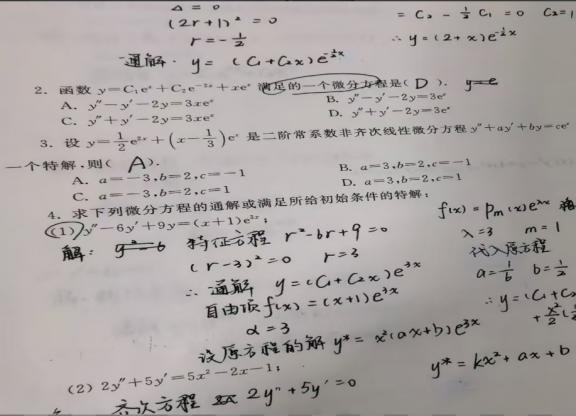 Δ = 0
(2r+1)² = 0
r = -1/2
通解. y = (C₁+C₂x)e^{-1/2x}
= C₂ - 1/2 C₁ = 0 C₂=1
∴ y=(2+x)e^{-1/2x}
2. 函数 y=C₁eˣ+C₂e⁻²ˣ+xeˣ 满足的一个微分方程是( D ).
A. y″-y′-2y=3xeˣ B. y″-y′-2y=3eˣ
C. y″+y′-2y=3xeˣ D. y″+y′-2y=3eˣ
3. 设 y=1/2 e²ˣ+(x-1/3)eˣ 是二阶常系数非齐次线性微分方程 y″+ay′+by=ceˣ
一个特解,则( A ).
A. a=-3,b=2,c=-1 B. a=3,b=2,c=-1
C. a=-3,b=2,c=1 D. a=3,b=2,c=1
4. 求下列微分方程的通解或满足所给初始条件的特解:
(1) y″-6y′+9y=(x+1)e³ˣ;
解: 特征方程 r²-6r+9=0
(r-3)²=0 r=3
∴ 通解 y=(C₁+C₂x)e³ˣ
自由项 f(x)=(x+1)e³ˣ
α=3
设原方程的解 y*=x²(ax+b)e³ˣ
f(x)=Pm(x)e^{λx}
λ=3 m=1
代入原方程
a=1/6 b=1/2
∴ y=(C₁+C₂
+x²/2(
(2) 2y″+5y′=5x²-2x-1;
y*=kx²+ax+b
齐次方程 2y″+5y′=0